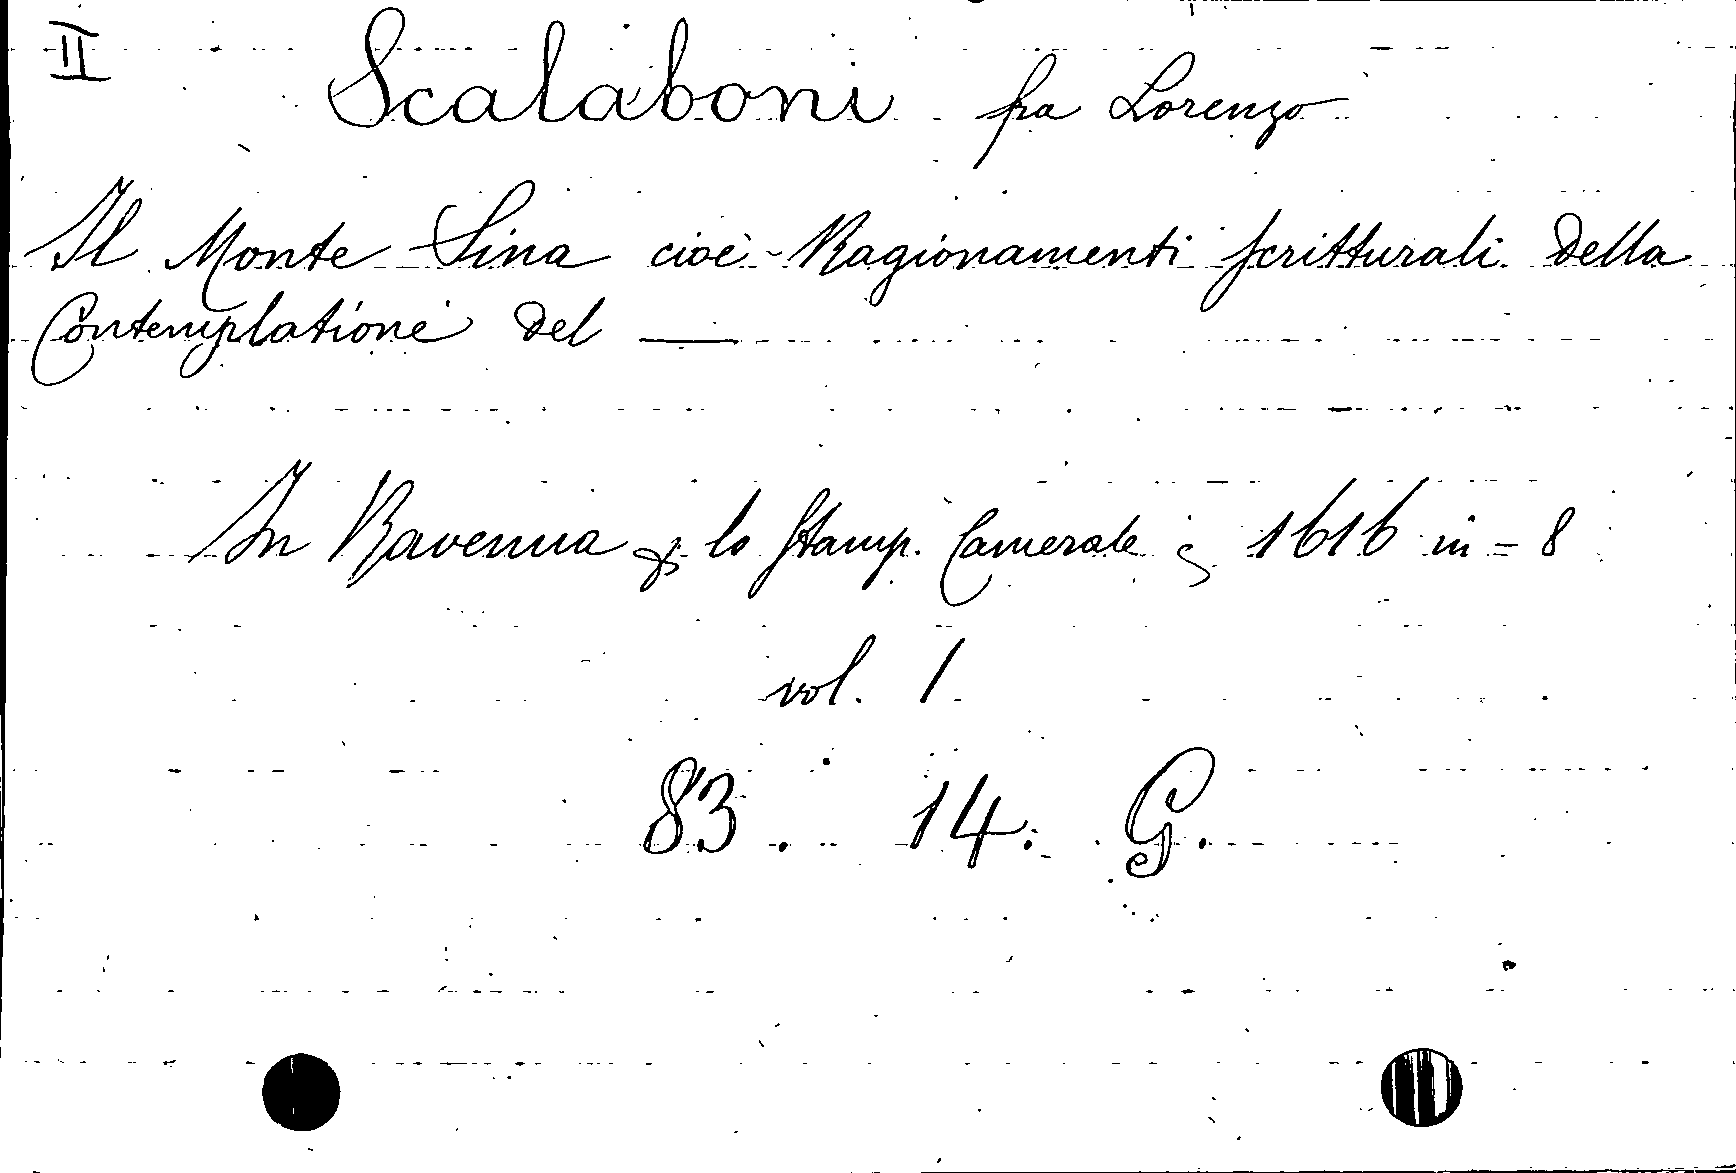 II
Scalaboni fra Lorenzo
Il Monte Sina cioè Ragionamenti scritturali della
Contemplatione del ——
In Ravenna p. lo Stamp. Camerale ; 1616 in = 8
vol. 1
83. 14. G.